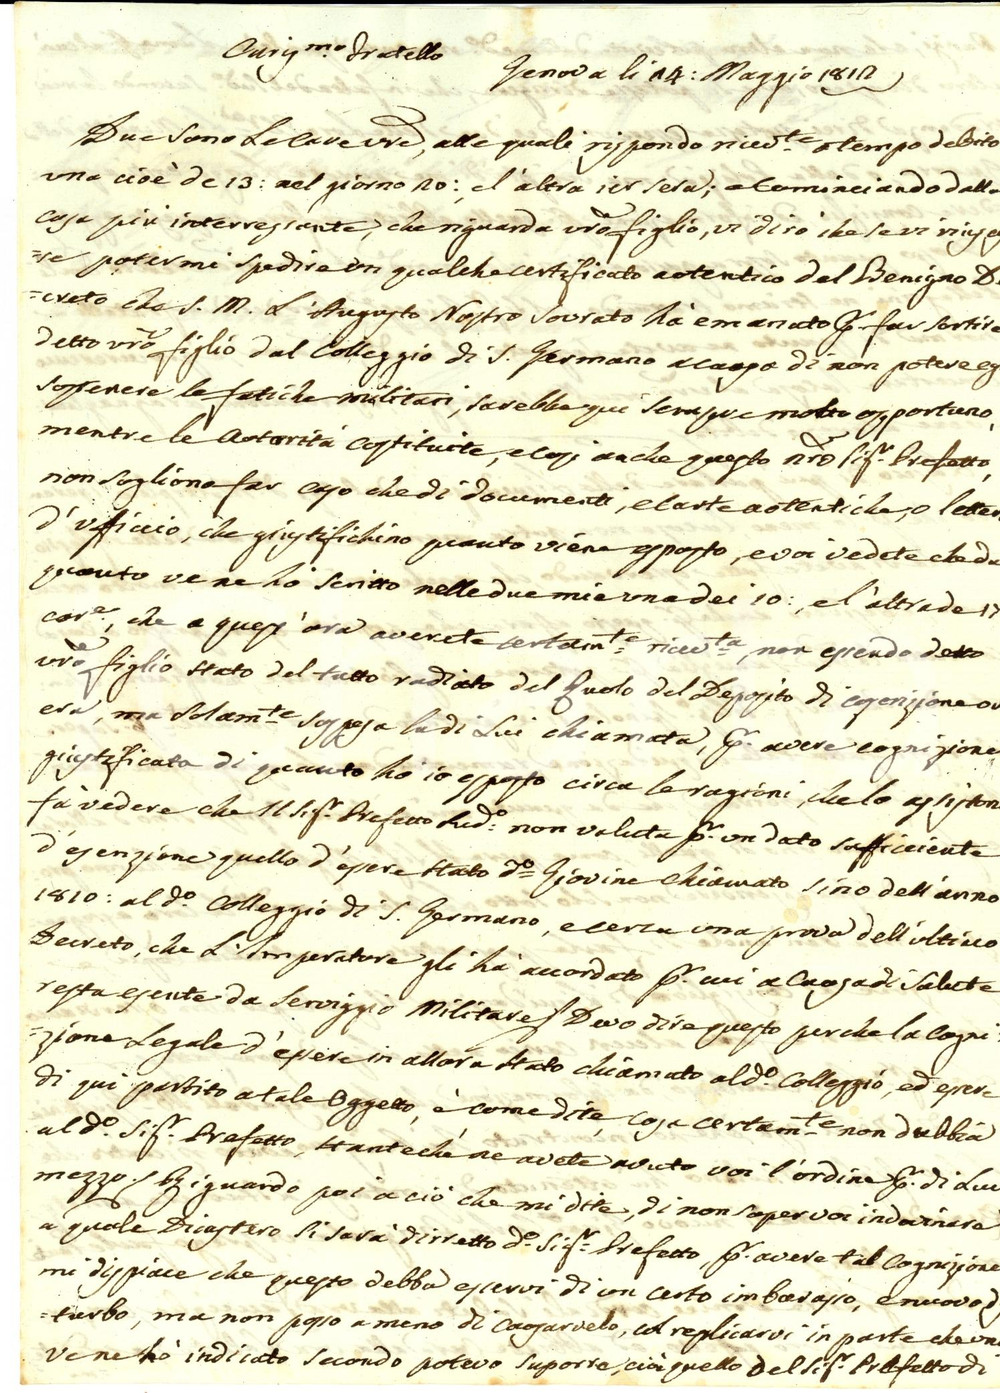 Carissmo. Fratello
Genova li 24: Maggio 1812
Due sono Le Care vre, alle quali rispondo ricevte. a tempo debito
una cioè de 13: nel giorno 20: e l'altra ier sera; e Cominciando dalla
cosa più interressante, che riguarda vro figlio, vi dirò che se vi riusci
=se potermi spedire un qualche certificato autentico del Benigno De
=creto che S. M. L'Augusto Nostro Sovrano hà emanato Pr. far sortire
detto vro figlio dal Colleggio di S. Germano a causa di non potere eg
sostenere le fatiche militari, sarebbe qui sempre molto opportuno,
mentre le Autorità costituite, e così anche questo nro Sigr. Prefetto,
non sogliono far caso che di documenti, e carte autentiche, o letter
d'Ufficio, che giustifichino quanto viene esposto, e voi vedete che da
quanto ve ne hò scritto nelle due mie una dei 10:, e l'altra de 17
core., che a quest'ora averete certamte. ricevta, non essendo detto
vro figlio stato del tutto radiato del Ruolo del Deposito di coscrizione ov
era, ma solamte. sospesa la di Lui chiamata, Pr. avere cognizione
giustificata di quanto hò io esposto circa le ragioni, che lo assiston
fà vedere che Il Sigr. Prefetto sudo: non valuta Pr. un dato sufficiente
d'esenzione quello d'essere stato do. Giovine chiamato sino dell'anno
1810: al do. Colleggio di S. Germano, e cerca una prova dell'ultimo
Decreto, che L'Imperatore gli hà accordato Pr. cui a Causa di Salute
resta esente da Serviggio Militare / Devo dire questo perche la Cogni:
=zione Legale d'essere in allora stato chiamato al do. Colleggio, ed essere
di qui partito a tale Oggetto, è come dite, cosa certamte. non dubbia
al do. Sigr. Prefetto, stantechè ne avete avuto voi l'ordine Pr. di Lui
mezzo / Riguardo poi a ciò che mi dite, di non saper voi indovinare
a quale Dicastero si sarà dirretto do. Sigr. Prefetto, Pr. avere tal Cognizione
mi dispiace che questo debba esservi di un certo imbarazo, e nuovo di
=sturbo, ma non posso a meno di Causarvelo, col replicarvi in parte che
ve ne hò indicato secondo potevo suporre, cioè quello del Sigr. Prefetto di